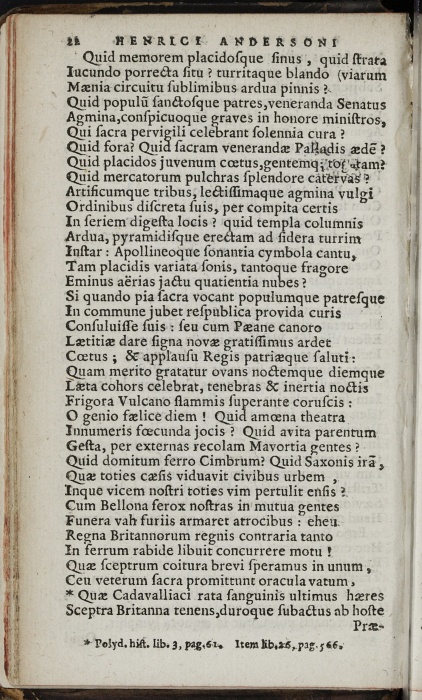 22 HENRICI ANDERSONI
Quid memorem placidosque sinus, quid strata
Iucundo porrecta situ? turritaque blando (viarum
Mænia circuitu sublimibus ardua pinnis?
Quid populũ sanctosque patres, veneranda Senatus
Agmina, conspicuoque graves in honore ministros,
Qui sacra pervigili celebrant solennia cura?
Quid fora? Quid sacram venerandæ Palladis ædẽ?
Quid placidos juvenum cœtus, gentemq; togatam?
Quid mercatorum pulchras splendore catervas?
Artificumque tribus, lectissimaque agmina vulgi
Ordinibus discreta suis, per compita certis
In seriem digesta locis? quid templa columnis
Ardua, pyramidisque erectam ad sidera turrim
Instar: Apollineoque sonantia cymbola cantu,
Tam placidis variata sonis, tantoque fragore
Eminus aërias jactu quatientia nubes?
Si quando pia sacra vocant populumque patresque
In commune jubet respublica provida curis
Consuluisse suis: seu cum Pæane canoro
Lætitiæ dare signa novæ gratissimus ardet
Cœtus; & applausu Regis patriæque saluti:
Quam merito gratatur ovans noctemque diemque
Læta cohors celebrat, tenebras & inertia noctis
Frigora Vulcano flammis superante coruscis:
O genio fælice diem! Quid amœna theatra
Innumeris fœcunda jocis? Quid avita parentum
Gesta, per externas recolam Mavortia gentes?
Quid domitum ferro Cimbrum? Quid Saxonis irã,
Quæ toties cæsis viduavit civibus urbem,
Inque vicem nostri toties vim pertulit ensis?
Cum Bellona ferox nostras in mutua gentes
Funera vah furiis armaret atrocibus: eheu
Regna Britannorum regnis contraria tanto
In ferrum rabide libuit concurrere motu!
Quæ sceptrum coitura brevi speramus in unum,
Ceu veterum sacra promittunt oracula vatum,
* Quæ Cadavalliaci rata sanguinis ultimus hæres
Sceptra Britanna tenens, duroque subactus ab hoste
Præ-
* Polyd. hist. lib. 3, pag. 61. Item lib. 26, pag. 566.